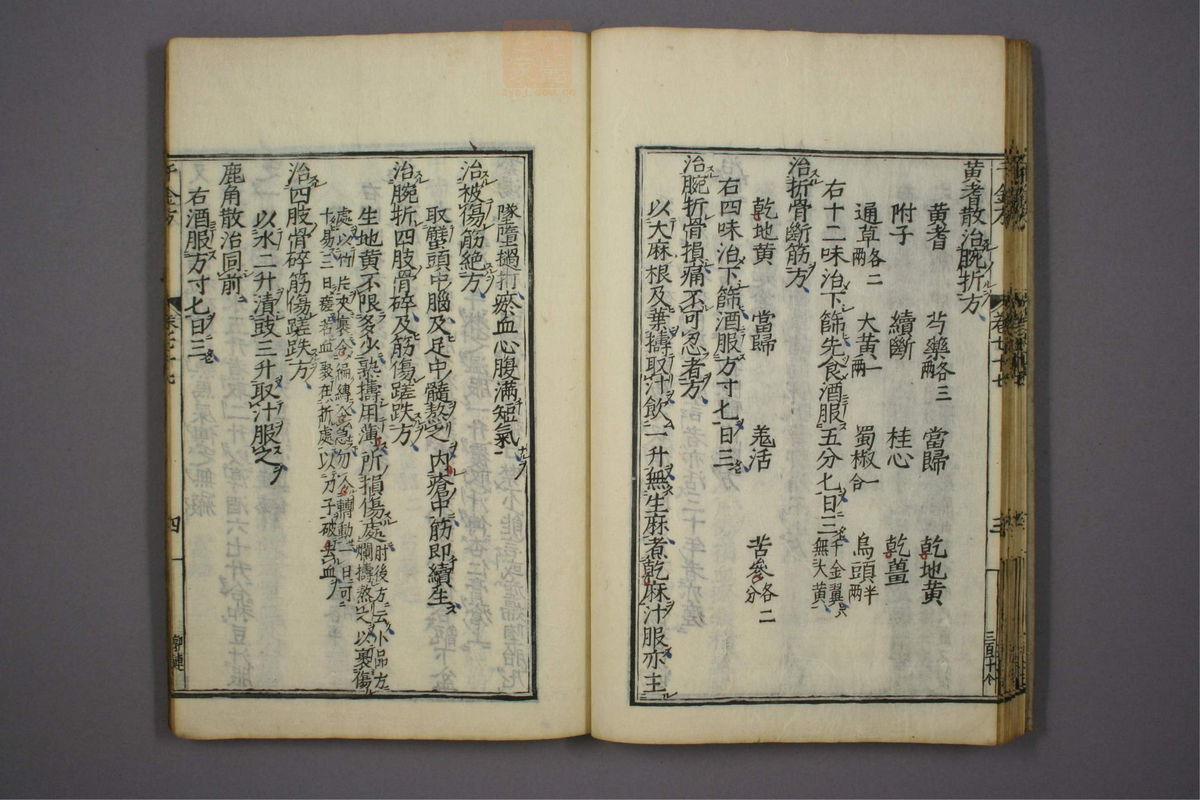 黄耆散治腕折方
黄耆 芍藥各三兩 當歸 乾地黄
附子 續斷 桂心 乾薑
通草各二兩 大黄一兩 蜀椒一合 烏頭半兩
右十二味治下篩先食酒服五分匕日三千金翼無大黄
治折骨斷筋方
乾地黄 當歸 羗活 苦參各二分
右四味治下篩酒服方寸匕日三
治腕折骨損痛不可忍者方
以大麻根及葉擣取汁飲一升無生麻煮乾麻汁服亦主
墜墮檛打瘀血心腹滿短氣
治被傷筋絶方
取蟹頭中腦及足中髓熬之内瘡中筋即續生
治腕折四肢骨碎及筋傷蹉跌方
生地黄不限多少熟擣用薄所損傷處肘後方云小品方爛擣熬之以裹傷
處以竹片夾裹令徧縛令急勿令轉動一日可
十易三日瘥若血聚在折處以刀子破去血
治四肢骨碎筋傷蹉跌方
以水二升漬豉三升取汁服之
鹿角散治同前
右酒服方寸匕日三
千金方 卷二十七 四